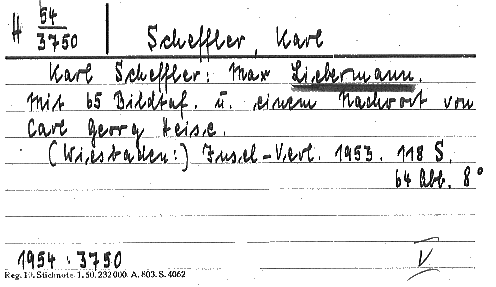 H 54/3750 Scheffler, Karl
Karl Scheffler: Max Liebermann.
Mit 65 Bildtaf. u. einem Nachwort von
Carl Georg Heise.
(Wiesbaden:) Insel-Verl. 1953. 118 S.
64 Abb. 8°
1954 . 3750
V
Reg. 10. Stichnote. 1. 50. 232000. A. 803. S. 4062